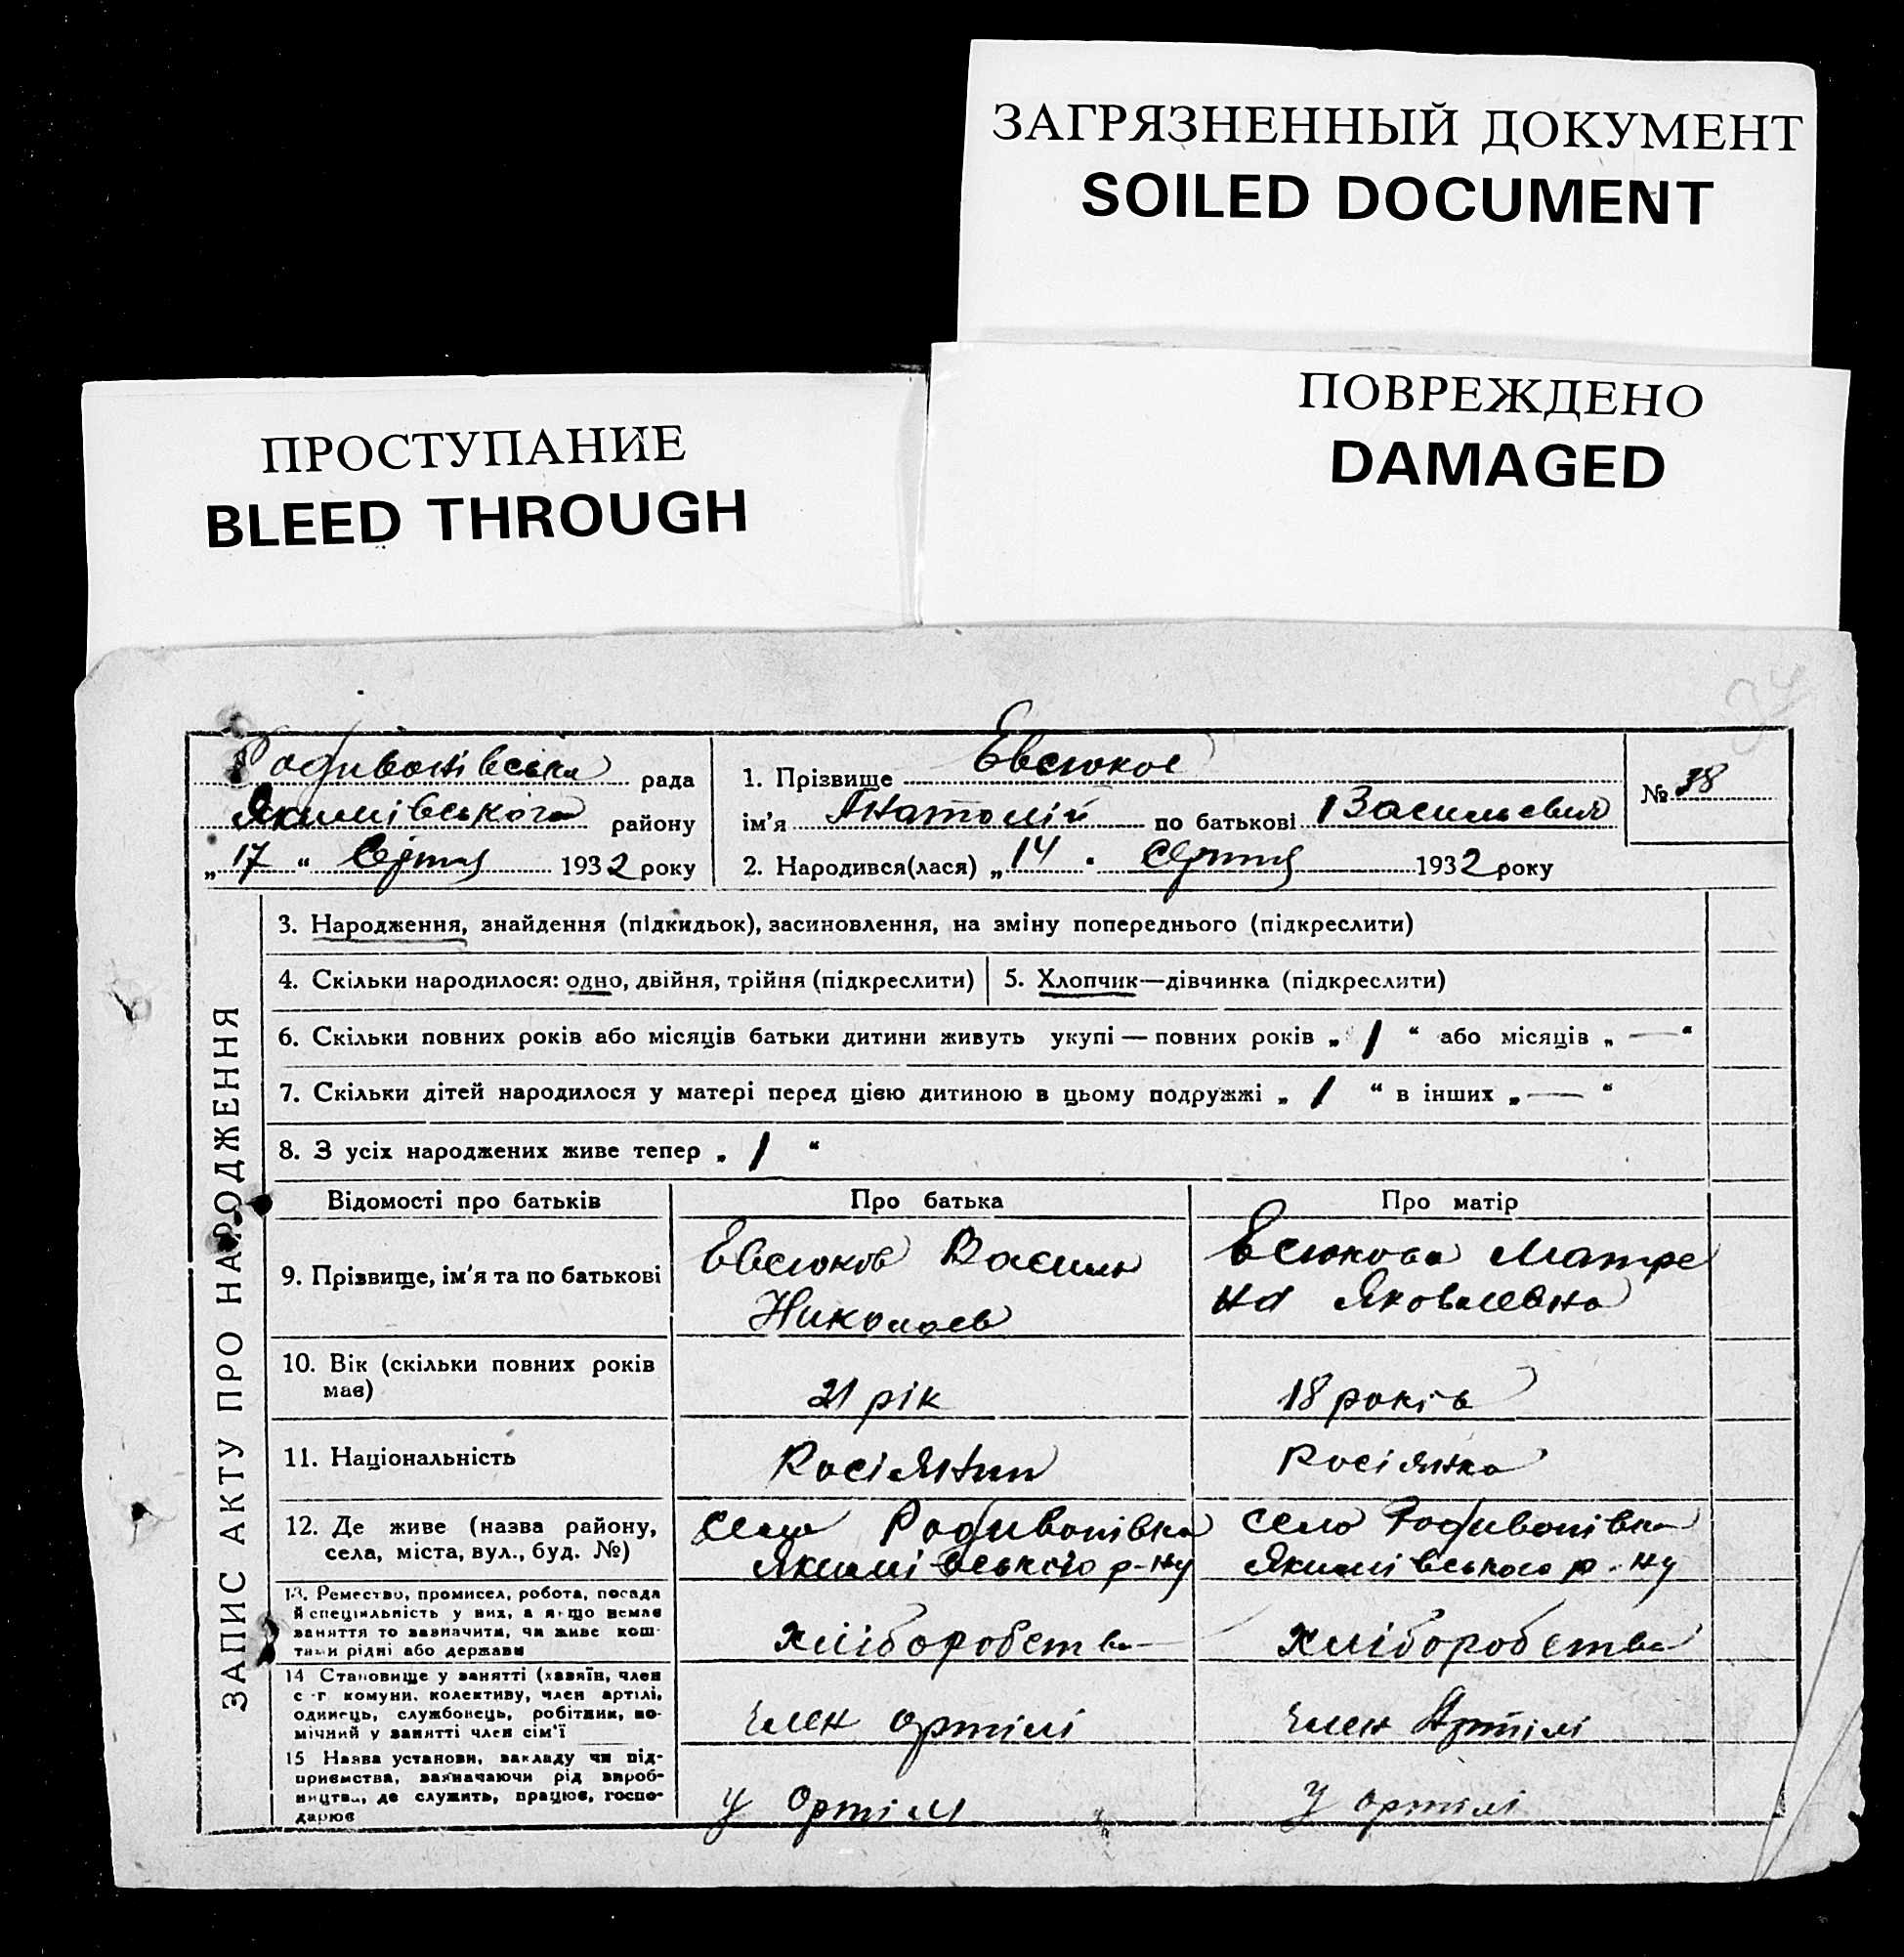 ЗАГРЯЗНЕННЫЙ ДОКУМЕНТ
SOILED DOCUMENT
ПОВРЕЖДЕНО
DAMAGED
ПРОСТУПАНИЕ
BLEED THROUGH
Родивонівська рада
Якимівського району
„17“ Серпня 1932 року
1. Прізвище Евсюков
ім'я Анатолій по батькові Васильевич
2. Народився(лася) „14 Серпня 1932 року
№ 38
ЗАПИС АКТУ ПРО НАРОДЖЕННЯ
3. Народження, знайдення (підкидьок), засиновлення, на зміну попереднього (підкреслити)
4. Скільки народилося: одно, двійня, трійня (підкреслити)
5. Хлопчик—дівчинка (підкреслити)
6. Скільки повних років або місяців батьки дитини живуть укупі — повних років „ 1 “ або місяців „ — “
7. Скільки дітей народилося у матері перед цією дитиною в цьому подружжі „ 1 “ в інших „ — “
8. З усіх народжених живе тепер „ 1 “
Відомості про батьків
Про батька
Про матір
9. Прізвище, ім'я та по батькові
Евсюков Василь
Николаев
Есюкова Матре
на Яковлевна
10. Вік (скільки повних років
має)
21 рік
18 років
11. Національність
Росіянин
Росіянка
12. Де живе (назва району,
села, міста, вул., буд. №)
село Родивонівка
Якимівського р-ну
село Родивонівка
Якимівського р-ну
13. Ремество, промисел, робота, посада
й спеціяльність у них, а якщо немає
заняття то зазначити, чи живе кош-
тами рідні або держави
хліборобства
хліборобства
14 Становище у занятті (хазяїн, член
с-г комуни, колективу, член артілі,
одинець, службонець, робітник, по-
мічний у занятті член сім'ї
член артілі
член Артілі
15 Назва установи, закладу чи під-
приємства, зазначаючи рід вироб-
ництва, де служить, працює, госпо-
дарює
у артілі
у артілі